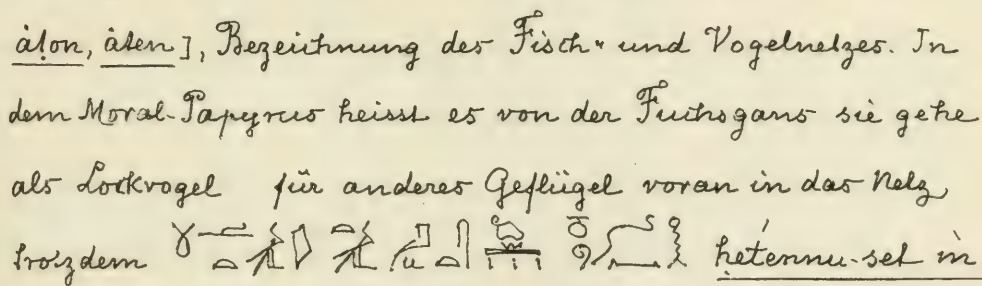 áton, áten], Bezeichnung des Fisch- und Vogelnetzes. In
dem Moral-Papyrus heisst es von der Fuchsgans sie gehe
als Lockvogel für anderes Geflügel voran in das Netz,
trotzdem ḥetennu-set in